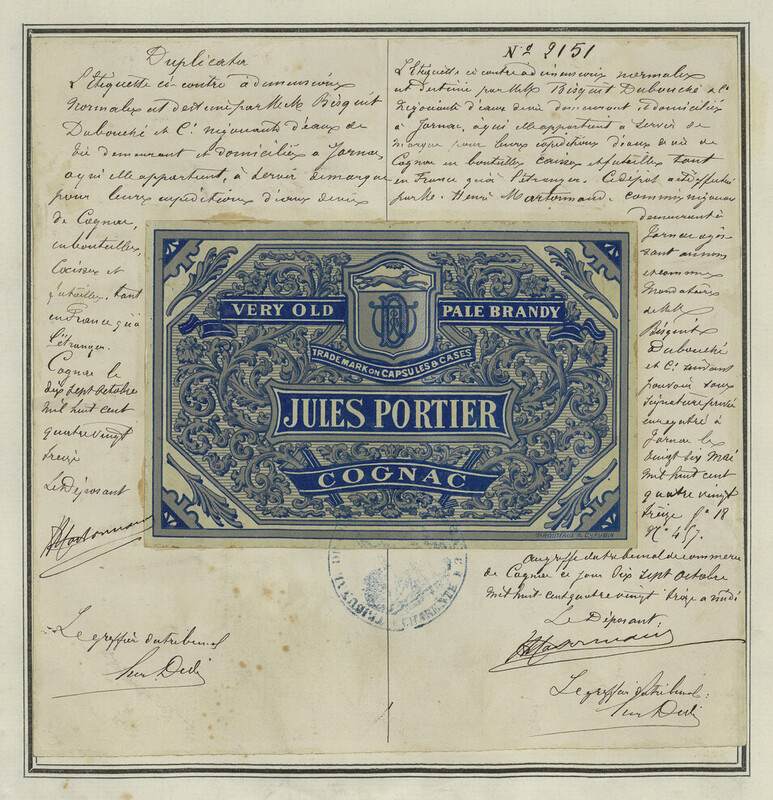 Duplicata
L'étiquette ci-contre a dimensions
normales est destinée par MM Bisquit
Dubouché et Cie négociants d'eaux de
vie demeurant et domiciliés à Jarnac,
à qui elle appartient, à servir de marque
pour leurs expéditions d'eaux de vie
de Cognac,
en bouteilles,
Caisses et
futailles, tant
en France qu'à
l'étranger.
Cognac le
dix sept octobre
mil huit cent
quatre vingt
treize
Le Déposant
Le greffier du tribunal
No 2151
L'étiquette ci contre a dimensions normales
est destinée par MM Bisquit Dubouché & Cie
Négociants d'eaux de vie demeurant et domiciliés
à Jarnac, à qui elle appartient à servir de
marque pour leurs expéditions d'eaux de vie de
Cognac en bouteilles caisses et futailles tant
en France qu'à l'étranger. Ce dépôt a été effectué
par M. Henri Martonnaud, commis négociant
demeurant à
Jarnac agis
sant au nom
et comme
Mandataire
de MM
Bisquit
Dubouché
et Cie suivant
pouvoir sous
signature privée
enregistré à
Jarnac le
vingt six Mai
mil huit cent
quatre vingt
treize fo 18
No 457.
au greffe du tribunal de commerce
de Cognac ce jour dix sept octobre
mil huit cent quatre vingt treize a midi
Le Déposant:
Le greffier du tribunal:
VERY OLD PALE BRANDY
TRADE MARK ON CAPSULES & CASES
JULES PORTIER
COGNAC